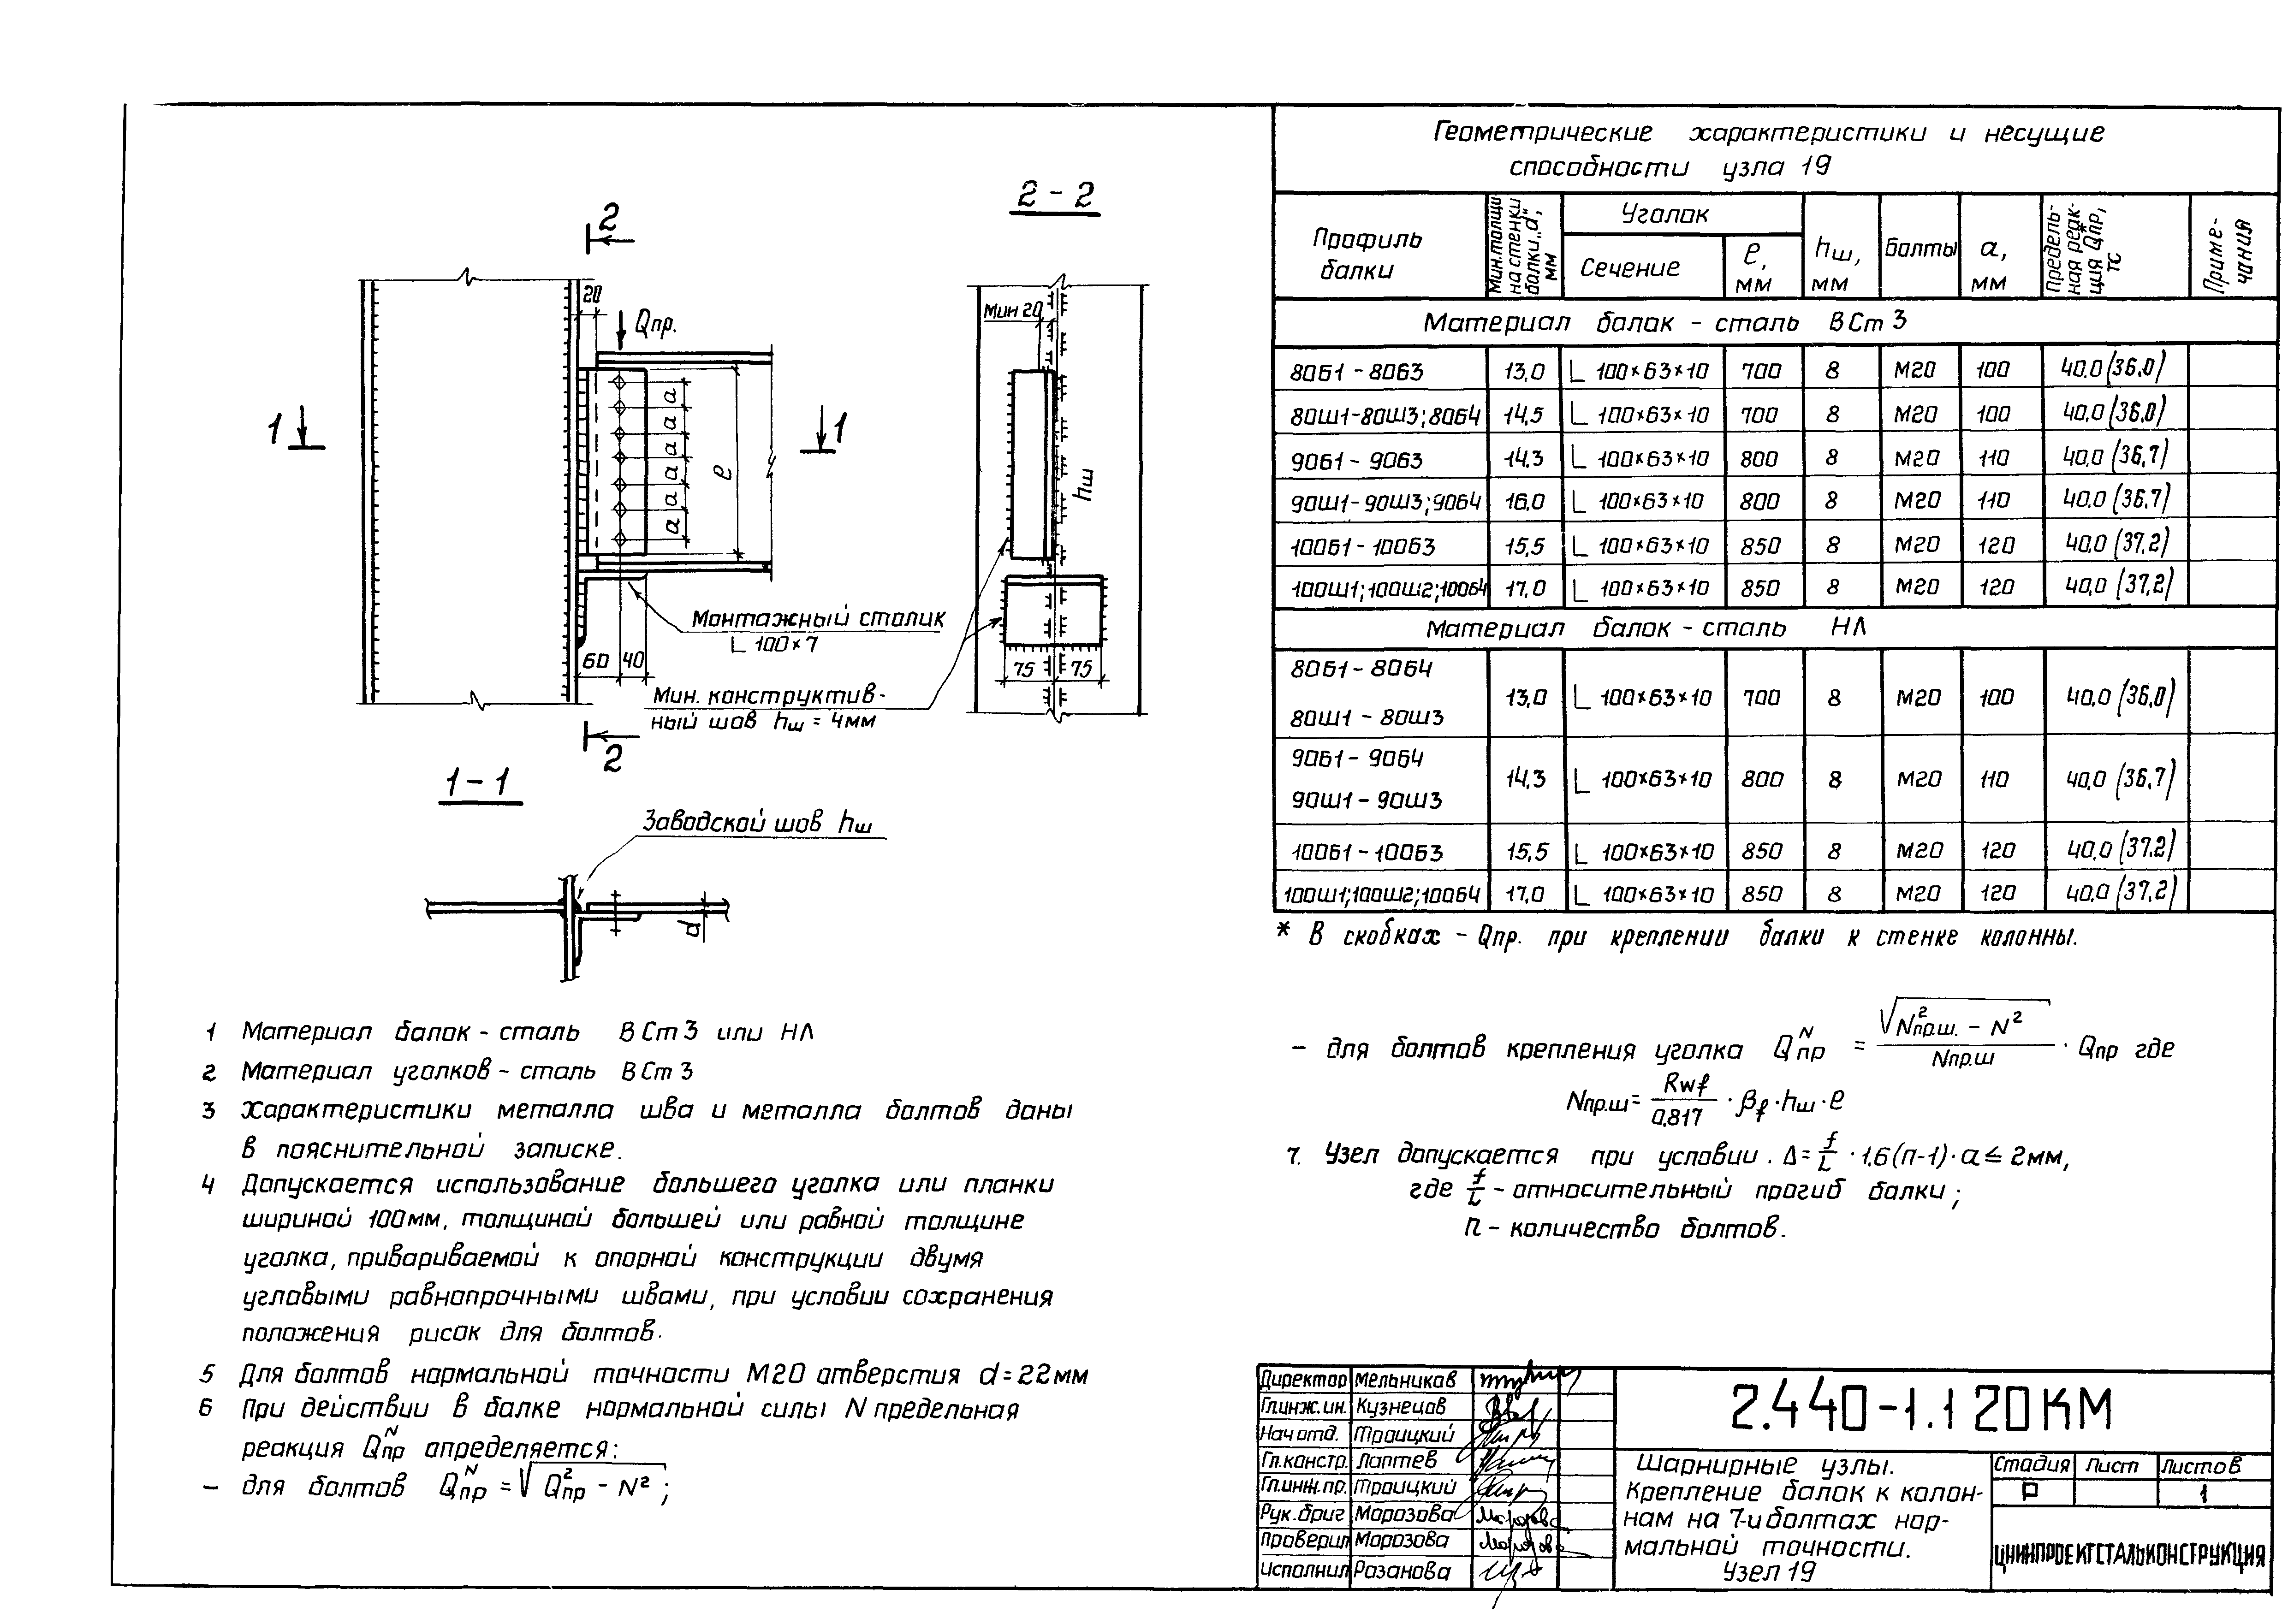 2
2 - 2
20
Qпр.
Мин 20
1
1
a
a
a
a
a
a
ℓ
hш
Монтажный столик
L 100×7
60 40
75 75
Мин. конструктив-
ный шов hш = 4мм
2
1 - 1
Заводской шов hш
d
1 Материал балок - сталь ВСт3 или НЛ
2 Материал уголков - сталь ВСт3
3 Характеристики металла шва и металла болтов даны
в пояснительной записке.
4 Допускается использование большего уголка или планки
шириной 100мм, толщиной большей или равной толщине
уголка, привариваемой к опорной конструкции двумя
угловыми равнопрочными швами, при условии сохранения
положения рисок для болтов.
5 Для болтов нормальной точности М20 отверстия d=22мм
6 При действии в балке нормальной силы N предельная
реакция Qᴺпр определяется:
- для болтов Qᴺпр = √Q²пр - N² ;
Геометрические характеристики и несущие
способности узла 19
Профиль балки | Мин. толщина стенки балки „d", мм | Уголок | hш, мм | Болты | a, мм | Предельная реакция Qпр*, тс | Примечания
Сечение | ℓ, мм
Материал балок - сталь ВСт3
80Б1 - 80Б3 13,0 L 100×63×10 700 8 М20 100 40,0 (36,0)
80Ш1-80Ш3; 80Б4 14,5 L 100×63×10 700 8 М20 100 40,0 (36,0)
90Б1 - 90Б3 14,3 L 100×63×10 800 8 М20 110 40,0 (36,7)
90Ш1-90Ш3; 90Б4 16,0 L 100×63×10 800 8 М20 110 40,0 (36,7)
100Б1 - 100Б3 15,5 L 100×63×10 850 8 М20 120 40,0 (37,2)
100Ш1; 100Ш2; 100Б4 17,0 L 100×63×10 850 8 М20 120 40,0 (37,2)
Материал балок - сталь НЛ
80Б1 - 80Б4
80Ш1 - 80Ш3 13,0 L 100×63×10 700 8 М20 100 40,0 (36,0)
90Б1 - 90Б4
90Ш1 - 90Ш3 14,3 L 100×63×10 800 8 М20 110 40,0 (36,7)
100Б1 - 100Б3 15,5 L 100×63×10 850 8 М20 120 40,0 (37,2)
100Ш1; 100Ш2; 100Б4 17,0 L 100×63×10 850 8 М20 120 40,0 (37,2)
* В скобках - Qпр. при креплении балки к стенке колонны.
- для болтов крепления уголка Qᴺпр = √N²пр.ш. - N² / Nпр.ш · Qпр где
Nпр.ш = Rwf / 0.817 · βf · hш · ℓ
7. Узел допускается при условии. Δ = f/L · 1.6 (n-1) · a ≤ 2мм,
где f/L - относительный прогиб балки ;
n - количество болтов.
Директор Мельников
Гл.инж.ин. Кузнецов
Нач отд. Троицкий
Гл.констр. Лаптев
Гл.инж.пр. Троицкий
Рук.бриг Морозова
Проверил Морозова
Исполнил Розанова
2.440-1.1 20КМ
Шарнирные узлы.
Крепление балок к колон-
нам на 7-и болтах нор-
мальной точности.
Узел 19
Стадия Лист Листов
Р 1
ЦНИИПРОЕКТСТАЛЬКОНСТРУКЦИЯ